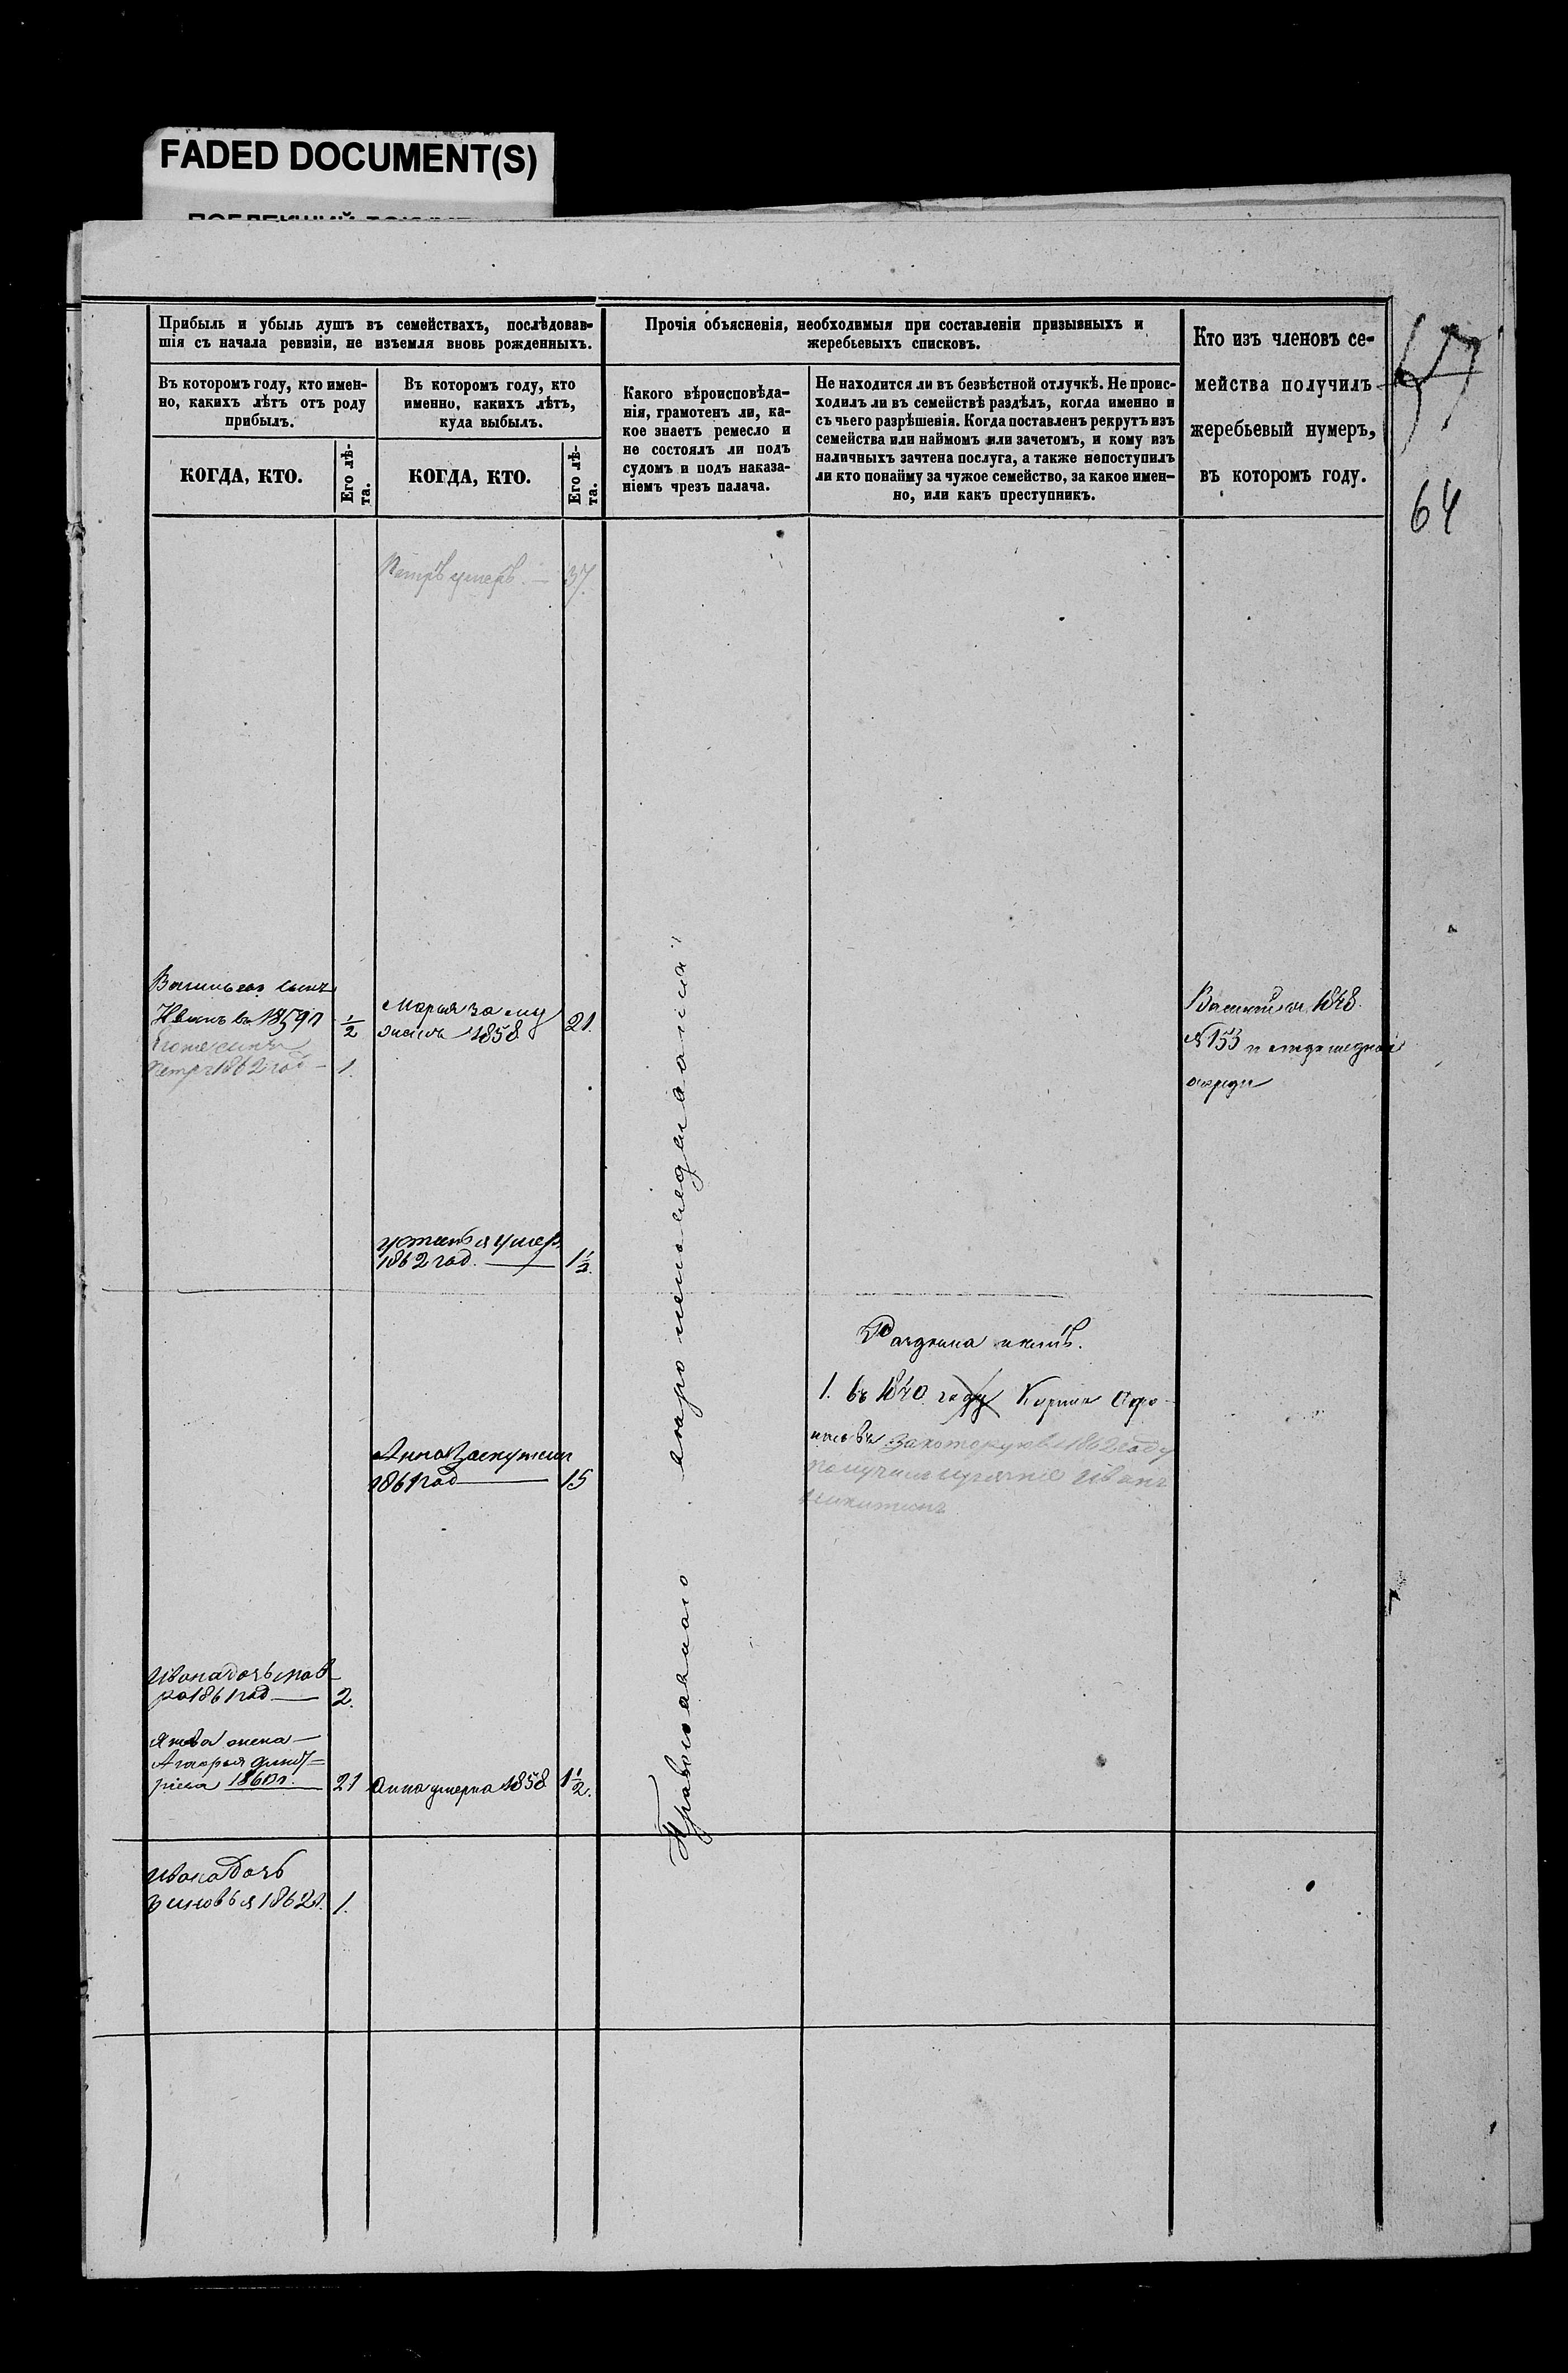 FADED DOCUMENT(S)
Прибыль и убыль душъ въ семействахъ, послѣдовав-
шія съ начала ревизіи, не изъемля вновь рожденныхъ.
Въ которомъ году, кто имен-
но, какихъ лѣтъ отъ роду
прибылъ.
КОГДА, КТО.
Его лѣ-
та.
Въ которомъ году, кто
именно, какихъ лѣтъ,
куда выбылъ.
КОГДА, КТО.
Его лѣ-
та.
Прочія объясненія, необходимыя при составленіи призывныхъ и
жеребьевыхъ списковъ.
Какого вѣроисповѣда-
нія, грамотенъ ли, ка-
кое знаетъ ремесло и
не состоялъ ли подъ
судомъ и подъ наказа-
ніемъ чрезъ палача.
Не находится ли въ безвѣстной отлучкѣ. Не проис-
ходилъ ли въ семействѣ раздѣлъ, когда именно и
съ чьего разрѣшенія. Когда поставленъ рекрутъ изъ
семейства или наймомъ или зачетомъ, и кому изъ
наличныхъ зачтена послуга, а также непоступилъ
ли кто понайму за чужое семейство, за какое имен-
но, или какъ преступникъ.
Кто изъ членовъ се-
мейства получилъ
жеребьевый нумеръ,
въ которомъ году.
57
64
Петръ умеръ. — 37.
сынъ
Иванъ въ 1859 г ½
сынъ
Петръ 1862 год — 1.
Марья за му
жемъ 1858 21.
1848.
№ 153
очереди
умер.
1862 год. — 1½.
1. въ 1840 году
за которую въ 1862 году
получилъ Иванъ
Никитинъ
Анна Замужем
1861 год — 15
Православнаго
Ивана дочь Мав
ра 1861 год — 2.
жена —
Дмит=
ріева 1860 г. 21
Анна умерла 1858 1½.
Ивана Дочь
Зиновья 1862 г. 1.